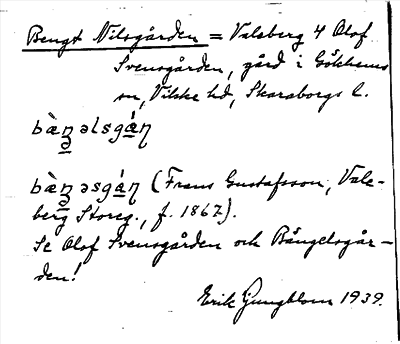 Bengt Nilsgården = Valsberg 4 Olof
Svensgården, gård i Gökhems
sn, Vilske hd, Skaraborgs l.
bàn̥əlsgán
bàn̥əsgán (Frans Gustafsson, Vals-
berg Storeg., f. 1867).
Se Olof Svensgården och Bängelsgår-
den!
Erik Ljungblom 1939.